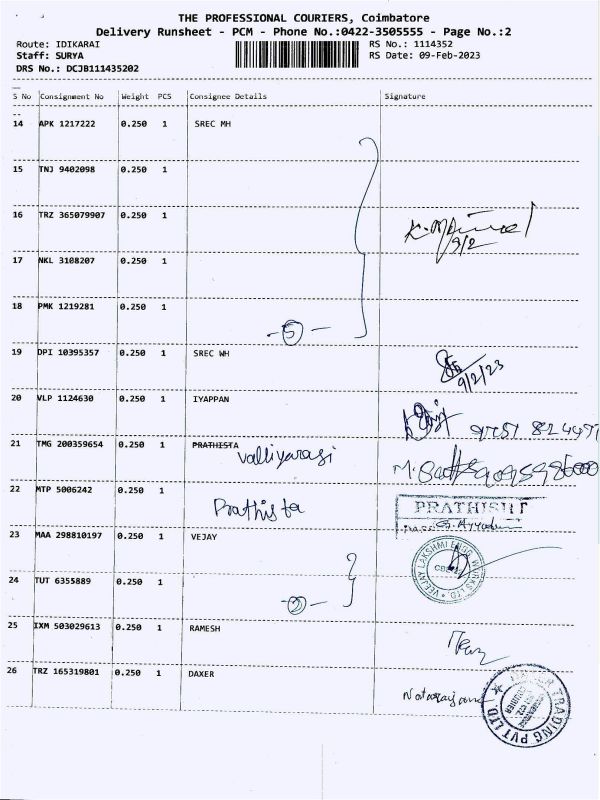 THE PROFESSIONAL COURIERS, Coimbatore
Delivery Runsheet - PCM - Phone No.:0422-3505555 - Page No.:2
Route: IDIKARAI RS No.: 1114352
Staff: SURYA RS Date: 09-Feb-2023
DRS No.: DCJB111435202
S No Consignment No Weight PCS Consignee Details Signature
14 APK 1217222 0.250 1 SREC MH
15 TNJ 9402098 0.250 1
16 TRZ 365079907 0.250 1
9/2
17 NKL 3108207 0.250 1
18 PMK 1219281 0.250 1
-5-
19 DPI 10395357 0.250 1 SREC WH
9/2/23
20 VLP 1124630 0.250 1 IYAPPAN
21 TMG 200359654 0.250 1 PRATHISTA
Valliyarasi
22 MTP 5006242 0.250 1
Prathista
PRATHISHT
23 MAA 298810197 0.250 1 VEJAY
VEEJAY LAKSHMI ENGG. WORKS LTD.
24 TUT 6355889 0.250 1
-2-
25 IXM 503029613 0.250 1 RAMESH
26 TRZ 165319801 0.250 1 DAXER
Natarajan
TRADING PVT LTD